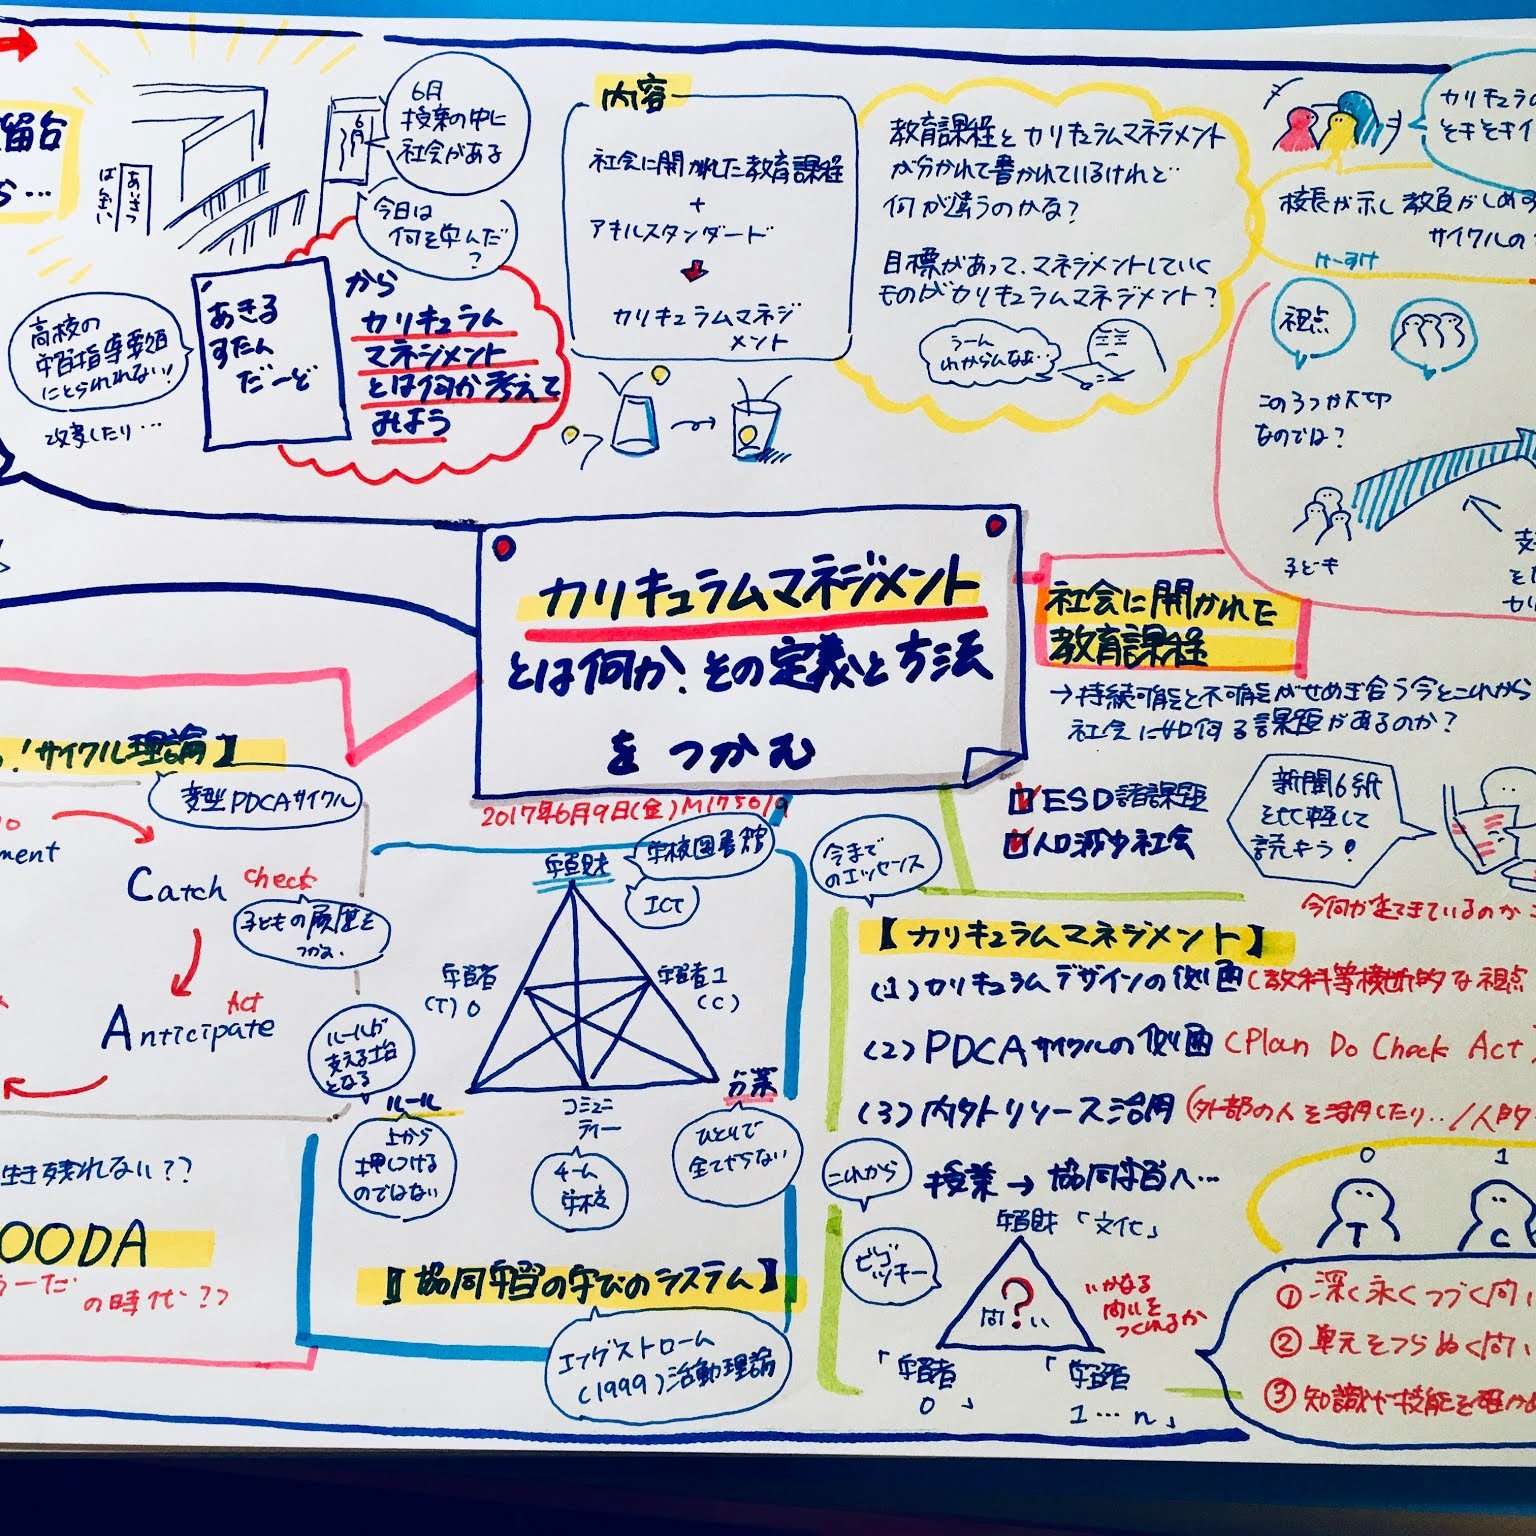 留台
ら…
あいさつ
ばんざい
6月
6月
授業の中に
社会がある
今日は
何を学んだ
?
高校の
学習指導要領
にとらわれない!
改革したり…
あきる
すたん
だーど
から
カリキュラム
マネジメント
とは何か考えて
みよう
内容
社会に開かれた教育課程
+
アキルスタンダード
カリキュラムマネジ
メント
教育課程とカリキュラムマネジメント
が分かれて書かれているけれど…
何が違うのかな?
目標があって、マネジメントしていく
ものがカリキュラムマネジメント?
うーん
わからんなぁ…
カリキュラム
そもそもイ
校長が示し教員がしめす
サイクルの
けーすけ
視点
この3つが大切
なのでは?
子ども
カリキュラムマネジメント
とは何か!その定義と方法
をつかむ
2017年6月9日(金)M175019
社会に開かれた
教育課程
→持続可能と不可能がせめぎ合う今とこれから
社会に如何る課題があるのか?
ESD諸課題
人口減少社会
新聞6紙
そ比較して
読もう!
今何が生きているのか
!サイクル理論】
変型PDCAサイクル
ment
Catch check
子どもの履歴を
つかむ.
Act
Anticipate
生き残れない??
OODA
うーだ
の時代??
学習財
学校図書館
ICT
学習者
(T)0
学習者1
(C)
ルールが
支える土台
となる
ルール
上から
押しつける
のではない
コミュニ
ティー
チーム
学校
分業
ひとりで
全てやらない
【協同学習の学びのシステム】
エンゲストローム
(1999)活動理論
今まで
のエッセンス
【カリキュラムマネジメント】
(1)カリキュラムデザインの側面(教科等横断的な視点
(2)PDCAサイクルの側面(Plan Do Check Act)
(3)内外リソース活用(外部の人を活用したり../人的
これから
授業→協同学習へ…
学習財「文化」
ビゴ
ツキー
問?い
いかなる
問いを
つくれるか
「学習者
0」
「学習者
1…n」
0
1
T
C
①深く永くつづく問い
②単元をつらぬく問い
③知識や技能を確かめ